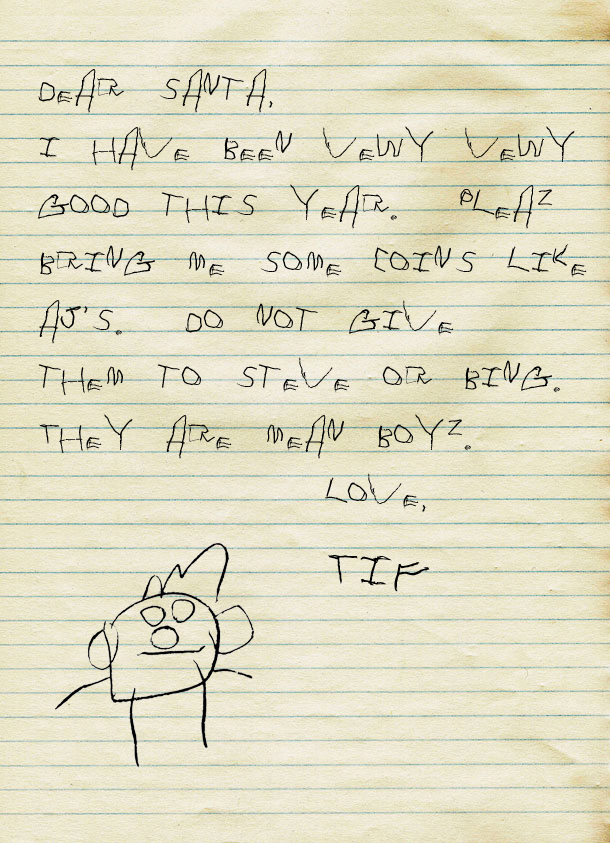 DEAR SANTA,
I HAVE BEEN VEWY VEWY
GOOD THIS YEAR. PLEAZ
BRING ME SOME COINS LIKE
AJ'S. DO NOT GIVE
THEM TO STEVE OR BING.
THEY ARE MEAN BOYZ.
LOVE,
TIF